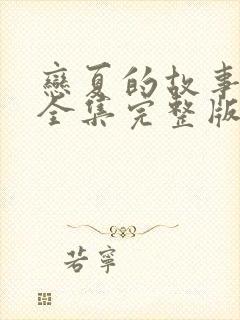 戀夏的故事
全集完整版
若寧